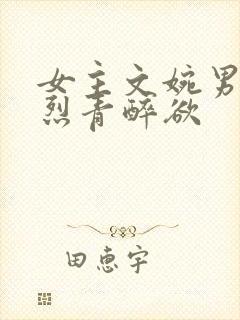 女主文婉男
烈青醉欲
田惠宇